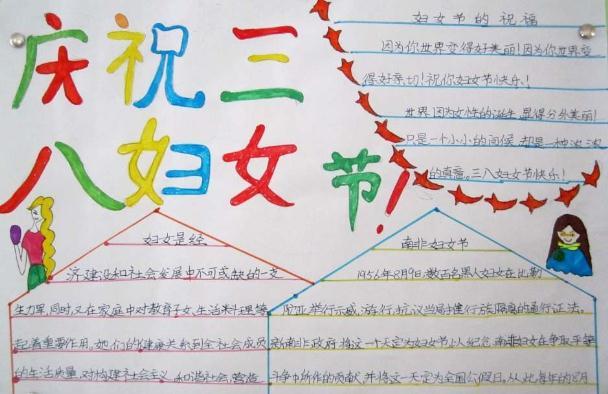 庆祝三
八妇女
节!
妇女节的祝福
因为你世界变得好美丽!因为你世界变
得好亲切!祝你妇女节快乐!
世界因为女性的诞生显得分外美丽!
只是一个小小的问候,却是一种浓浓
的真蕴。三八妇女节快乐!
妇女是经
济建设和社会发展中不可或缺的一支
生力军,同时,又在家庭中对教育子女、生活料理等
起着重要作用,她们的健康关系到全社会成员
的生活质量,对构建社会主义和谐社会,营造
南非妇女节
1956年8月9日,数百名黑人妇女在比勒
陀亚,举行示威游行,抗议当局推行种族隔离的通行证法。
新南非政府将这一个天定为妇女节以纪念南非妇女在争取平等
斗争中所作的贡献,并将这一天定为全国公假日,从此每年的8月